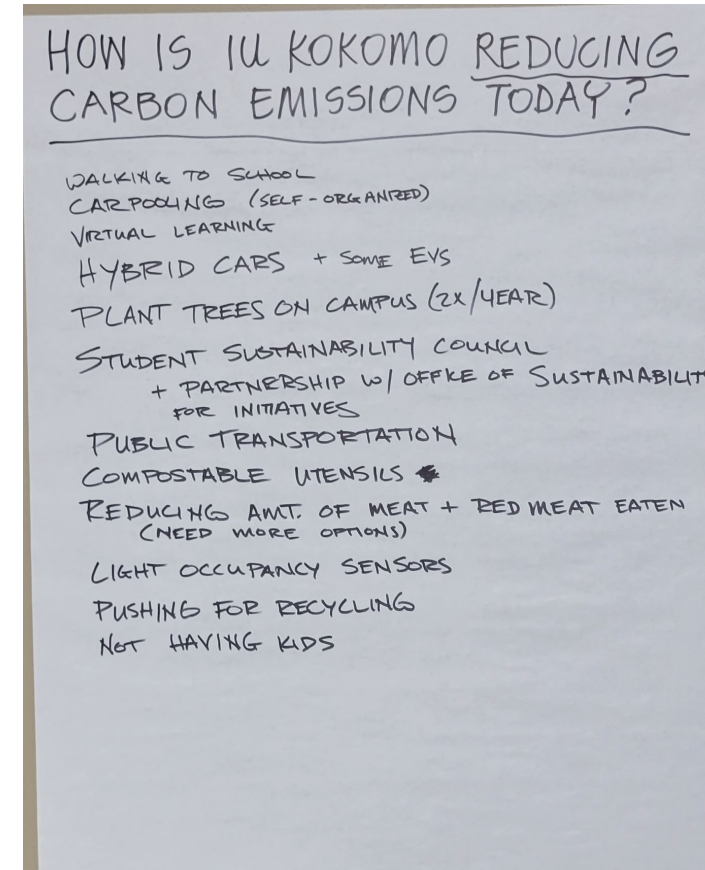 HOW IS IU KOKOMO REDUCING
CARBON EMISSIONS TODAY?
WALKING TO SCHOOL
CARPOOLING (SELF-ORGANIZED)
VIRTUAL LEARNING
HYBRID CARS + SOME EVS
PLANT TREES ON CAMPUS (2X/YEAR)
STUDENT SUSTAINABILITY COUNCIL
+ PARTNERSHIP W/ OFFICE OF SUSTAINABILIT
FOR INITIATIVES
PUBLIC TRANSPORTATION
COMPOSTABLE UTENSILS
REDUCING AMT. OF MEAT + RED MEAT EATEN
(NEED MORE OPTIONS)
LIGHT OCCUPANCY SENSORS
PUSHING FOR RECYCLING
NOT HAVING KIDS